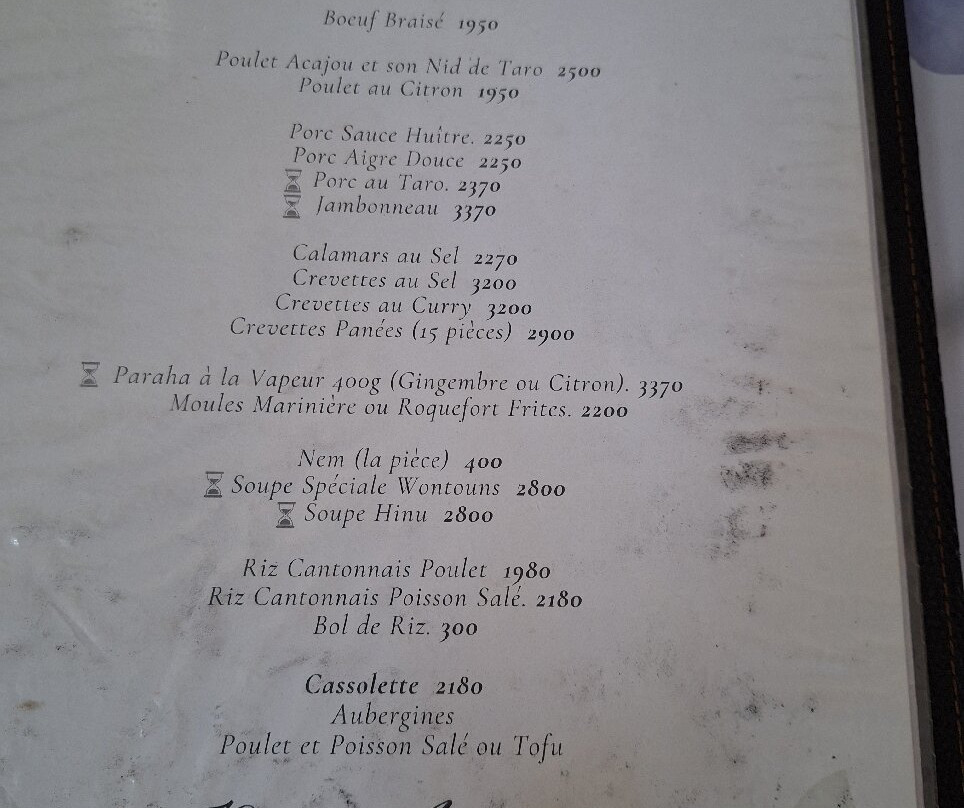 Boeuf Braisé 1950
Poulet Acajou et son Nid de Taro 2500
Poulet au Citron 1950
Porc Sauce Huître. 2250
Porc Aigre Douce 2250
Porc au Taro. 2370
Jambonneau 3370
Calamars au Sel 2270
Crevettes au Sel 3200
Crevettes au Curry 3200
Crevettes Panées (15 pièces) 2900
Paraha à la Vapeur 400g (Gingembre ou Citron). 3370
Moules Marinière ou Roquefort Frites. 2200
Nem (la pièce) 400
Soupe Spéciale Wontouns 2800
Soupe Hinu 2800
Riz Cantonnais Poulet 1980
Riz Cantonnais Poisson Salé. 2180
Bol de Riz. 300
Cassolette 2180
Aubergines
Poulet et Poisson Salé ou Tofu